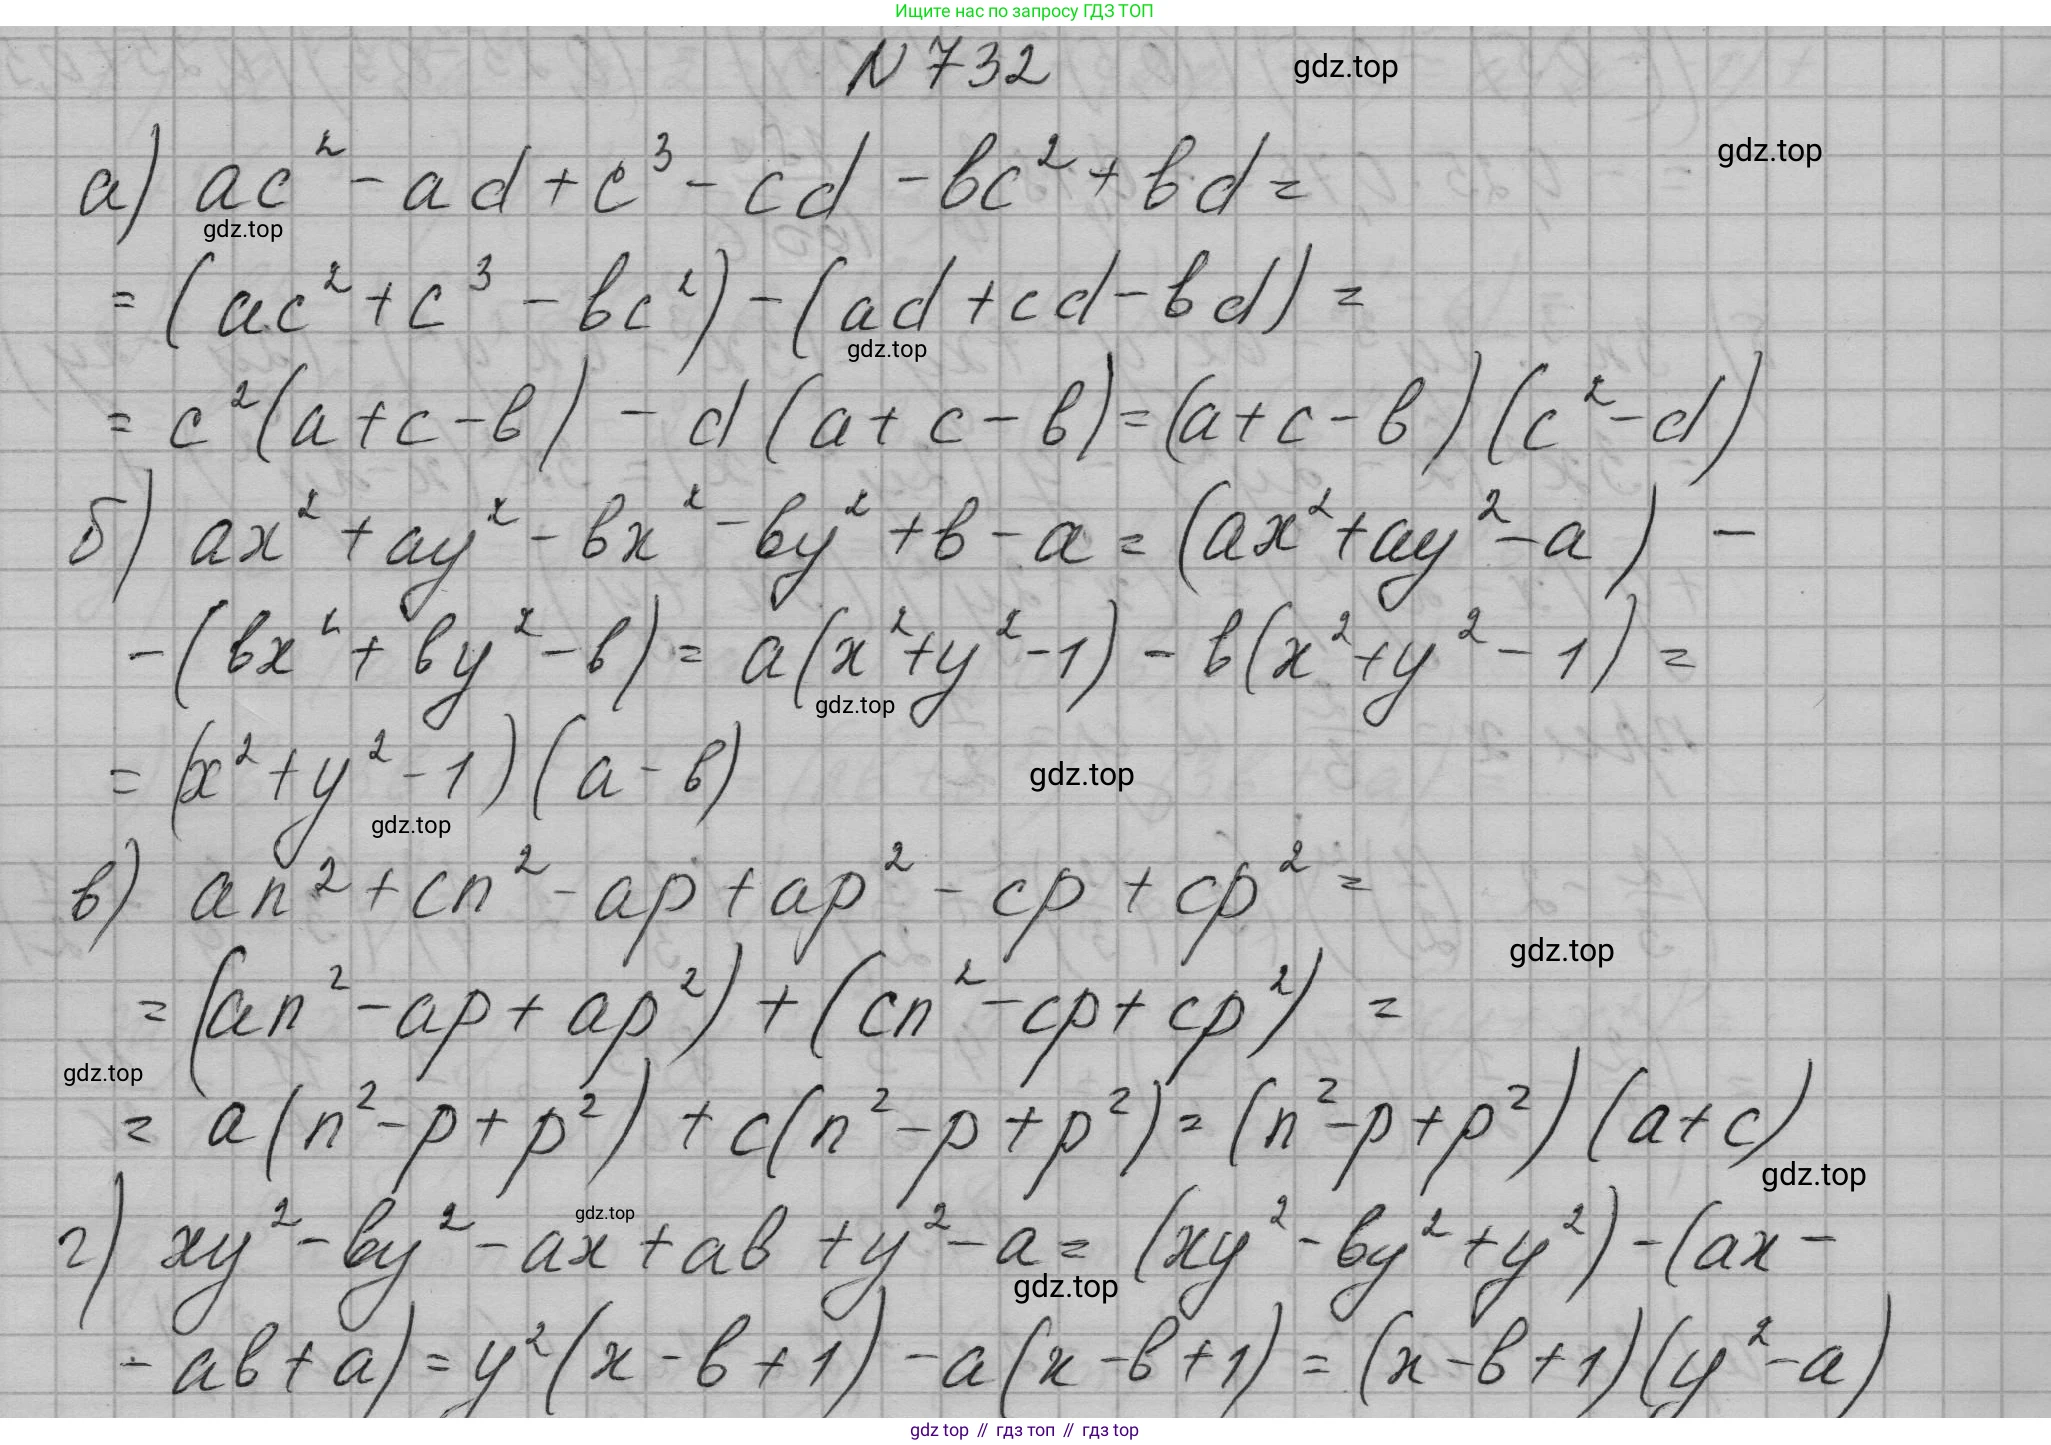 Ищите нас по запросу ГДЗ ТОП
N 732
gdz.top
gdz.top
а) ac² - ad + c³ - cd - bc² + bd =
gdz.top
= (ac² + c³ - bc²) - (ad + cd - bd) =
gdz.top
= c²(a + c - b) - d (a + c - b) = (a + c - b) (c² - d)
б) ax² + ay² - bx² - by² + b - a = (ax² + ay² - a) -
- (bx² + by² - b) = a(x² + y² - 1) - b(x² + y² - 1) =
gdz.top
= (x² + y² - 1) (a - b)
gdz.top
gdz.top
в) an² + cn² - ap + ap² - cp + cp² =
gdz.top
= (an² - ap + ap²) + (cn² - cp + cp²) =
gdz.top
= a(n² - p + p²) + c(n² - p + p²) = (n² - p + p²) (a + c)
gdz.top
gdz.top
г) xy² - by² - ax + ab + y² - a = (xy² - by² + y²) - (ax -
gdz.top
- ab + a) = y²(x - b + 1) - a(x - b + 1) = (x - b + 1)(y² - a)
gdz top // гдз топ // гдз top